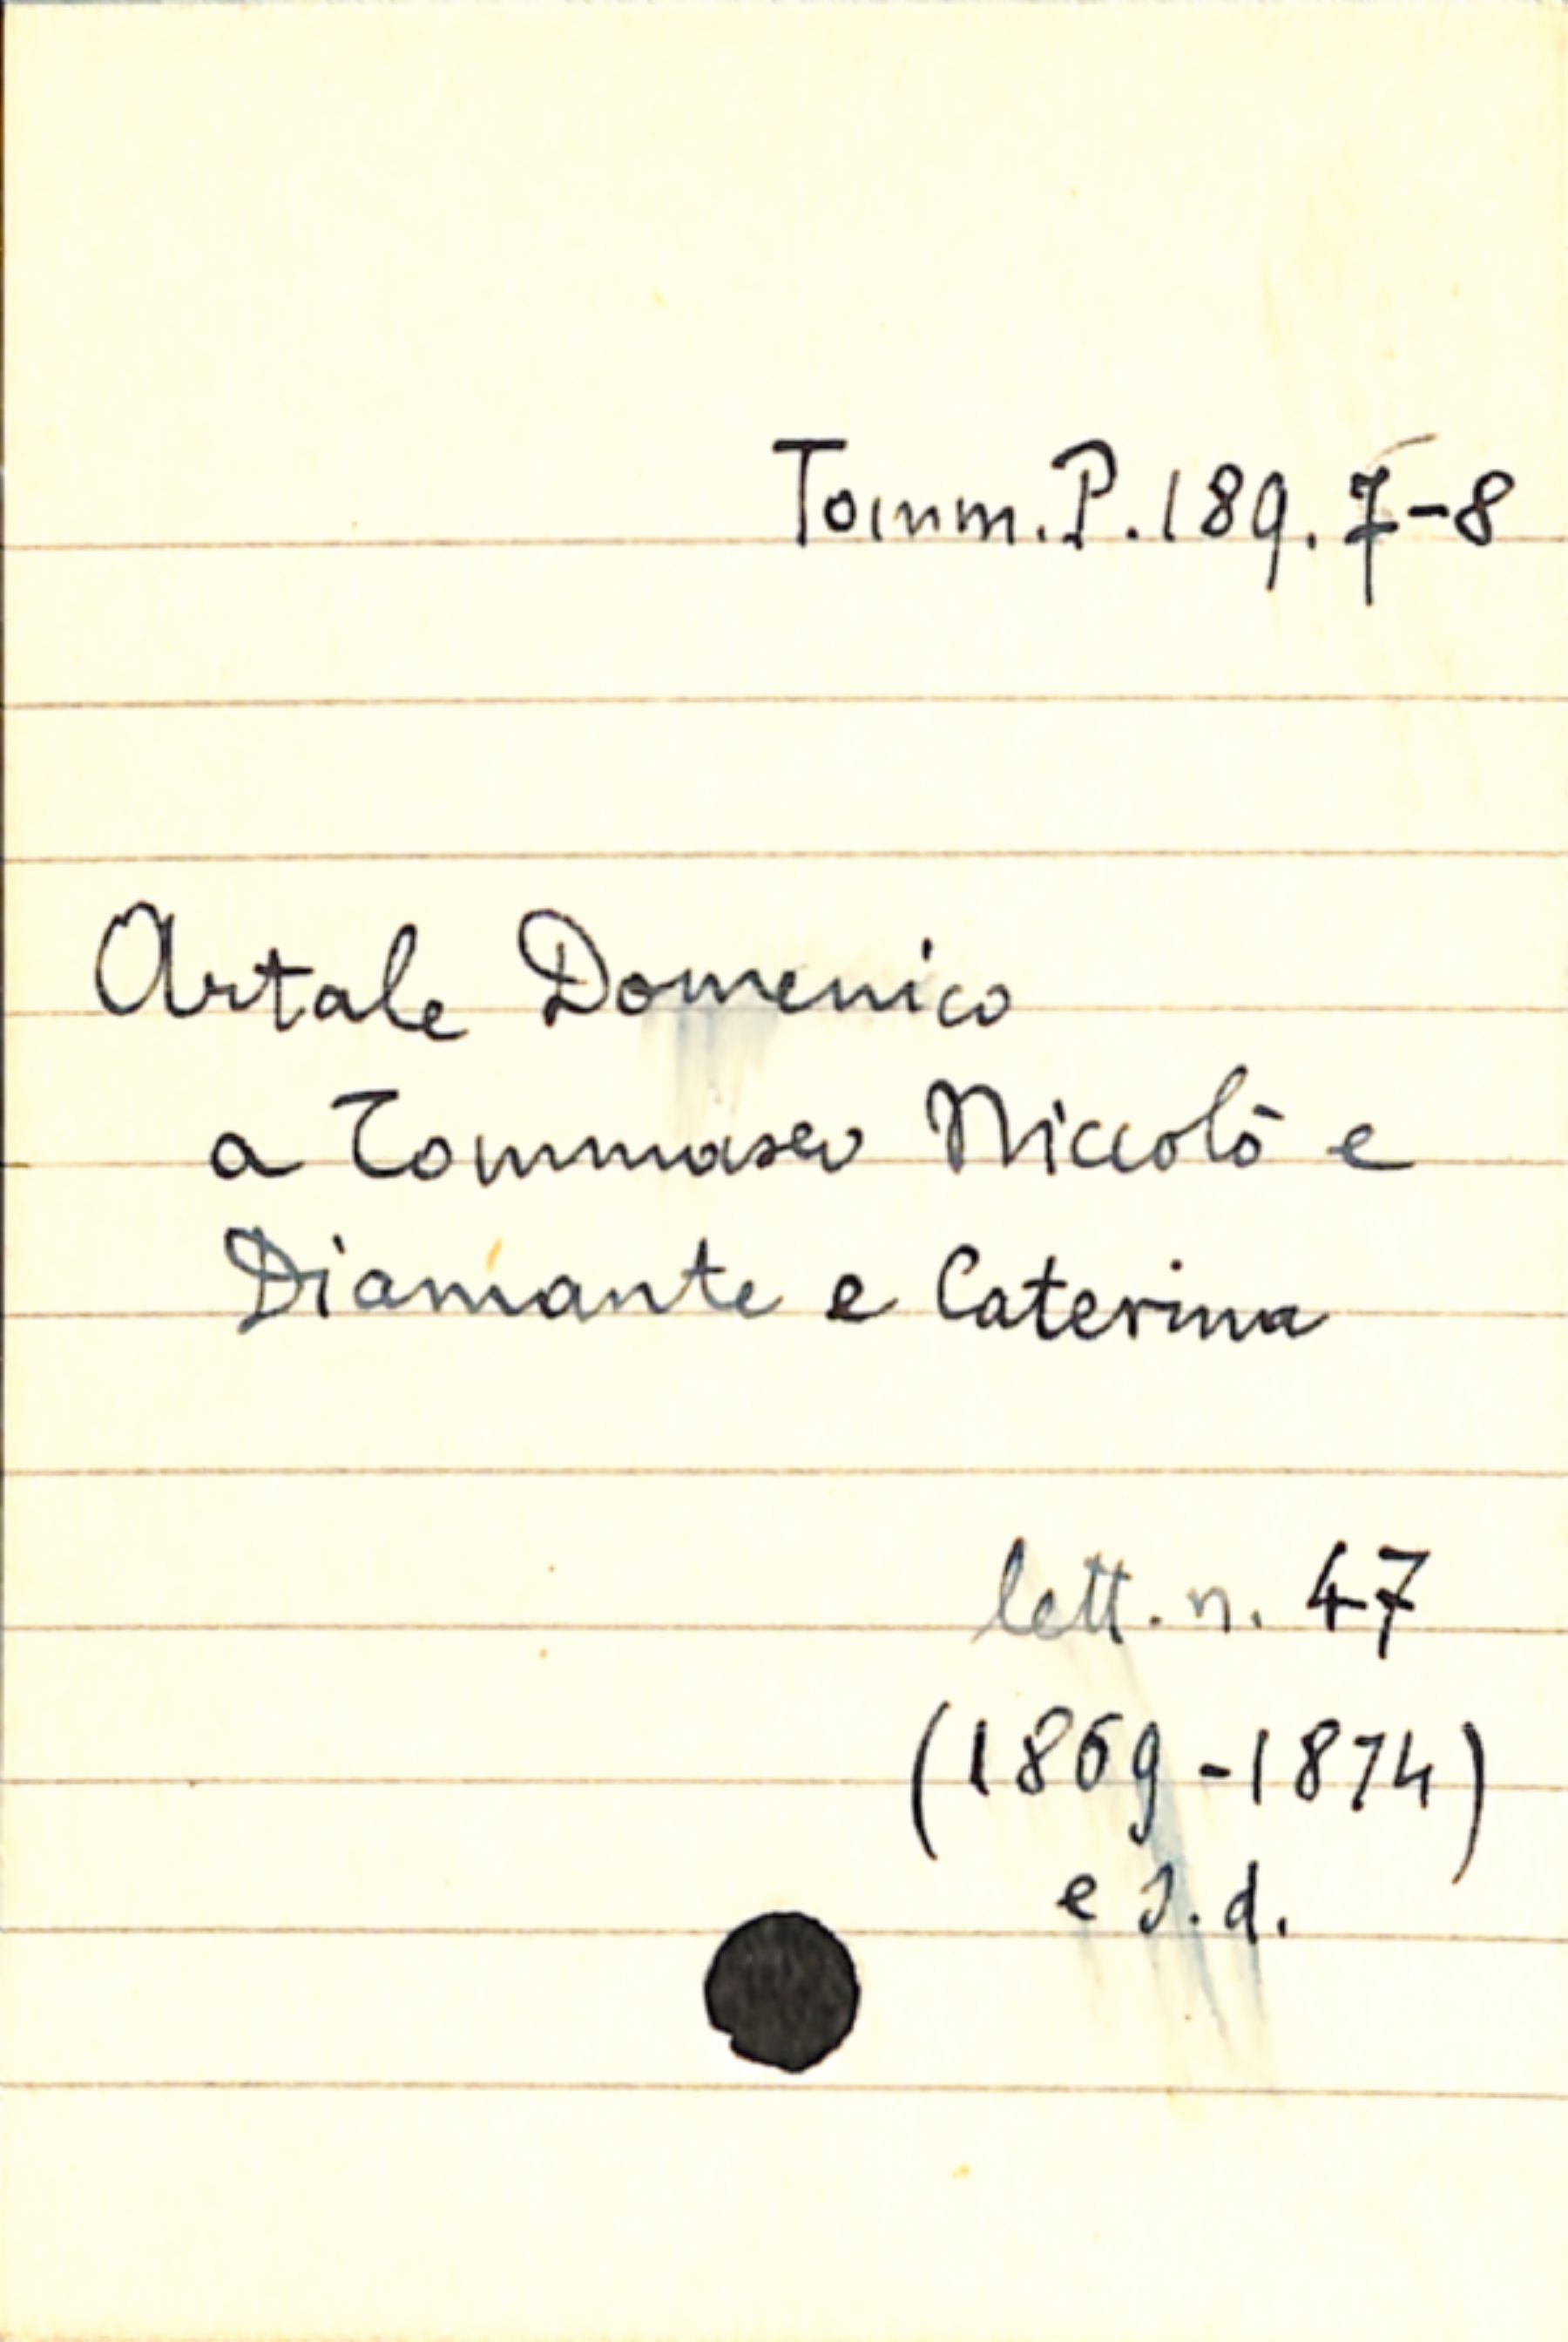 Tomm. P. 189. 7-8
Artale Domenico
a Tommaseo Niccolò e
Diamante e Caterina
lett. n. 47
(1869-1874)
e s.d.